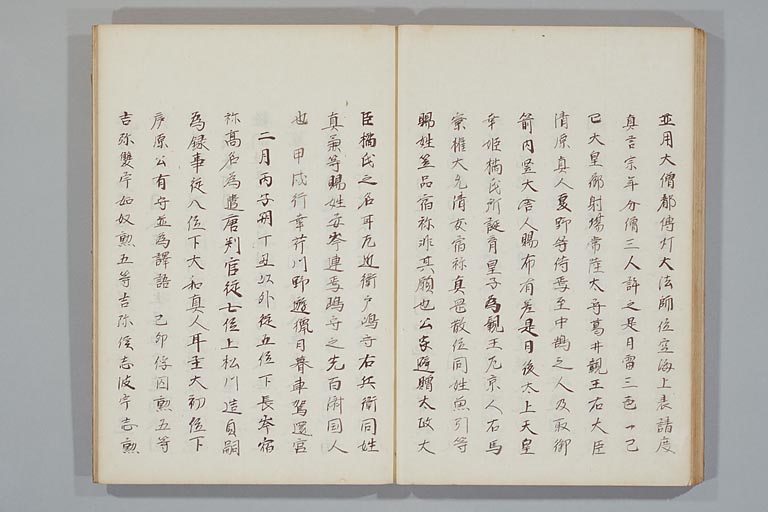 並用大僧都傳灯大法師位空海上表請度
真言宗年分僧三人許之是日雷三邑一己
巳大皇御射場常陸大守葛井親王右大臣
清原真人夏野等侍焉至中鵠之人及取御
箭内竪大舎人賜布有差是日後太上天皇
幸姫橘氏所誕育皇子為親王左京人右馬
寮権大允清友宿祢真罡散位同姓魚引等
賜姓笠品宿祢非其願也公家避贈太政大
臣橘氏之名耳左近衛戸嶋守右兵衛同姓
真魚等賜姓安岑連焉嶋守之先百済国人
也甲戌行幸芹川野遊猟日暮車駕還宮
二月丙子朔丁丑以外従五位下長岑宿
祢高名為遣唐判官従七位上松川造貞嗣
為録事従八位下大和真人耳主大初位下
廬原公有守並為譯語己卯俘囚勲五等
吉弥雙斤如奴勲五等吉弥侯志波宇志勲